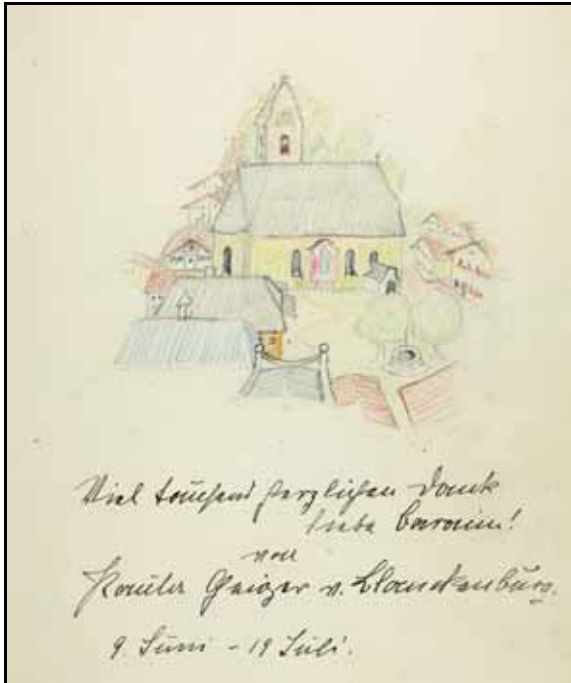 Viel tausend herzlichen Dank
liebe Baronin!
von
Paula Geiger v. Blanckenburg.
9. Juni – 19 Juli.